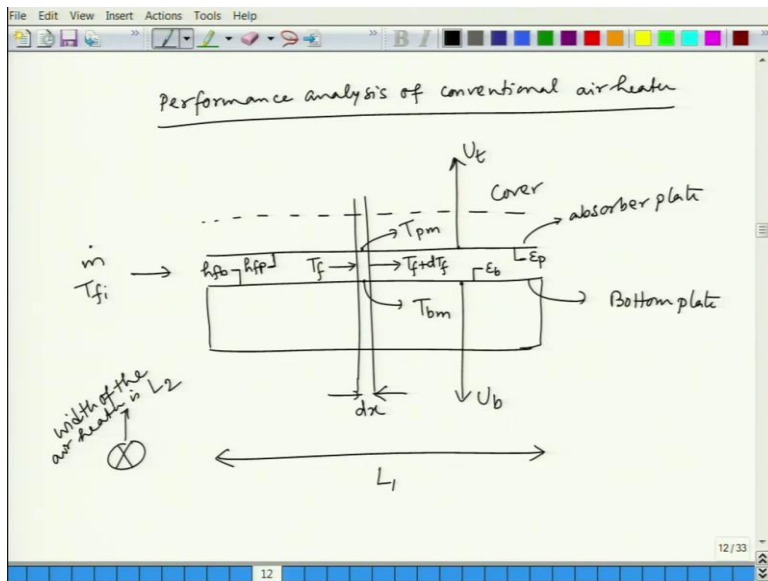 File Edit View Insert Actions Tools Help
B I
Performance analysis of conventional air heater
Ut
Cover
absorber plate
Tpm
ṁ
Tfi
hfb
hfp
Tf
Tf+dTf
εb
εp
Tbm
Bottom plate
width of the
air heath is L2
dx
Ub
L1
12/33
12